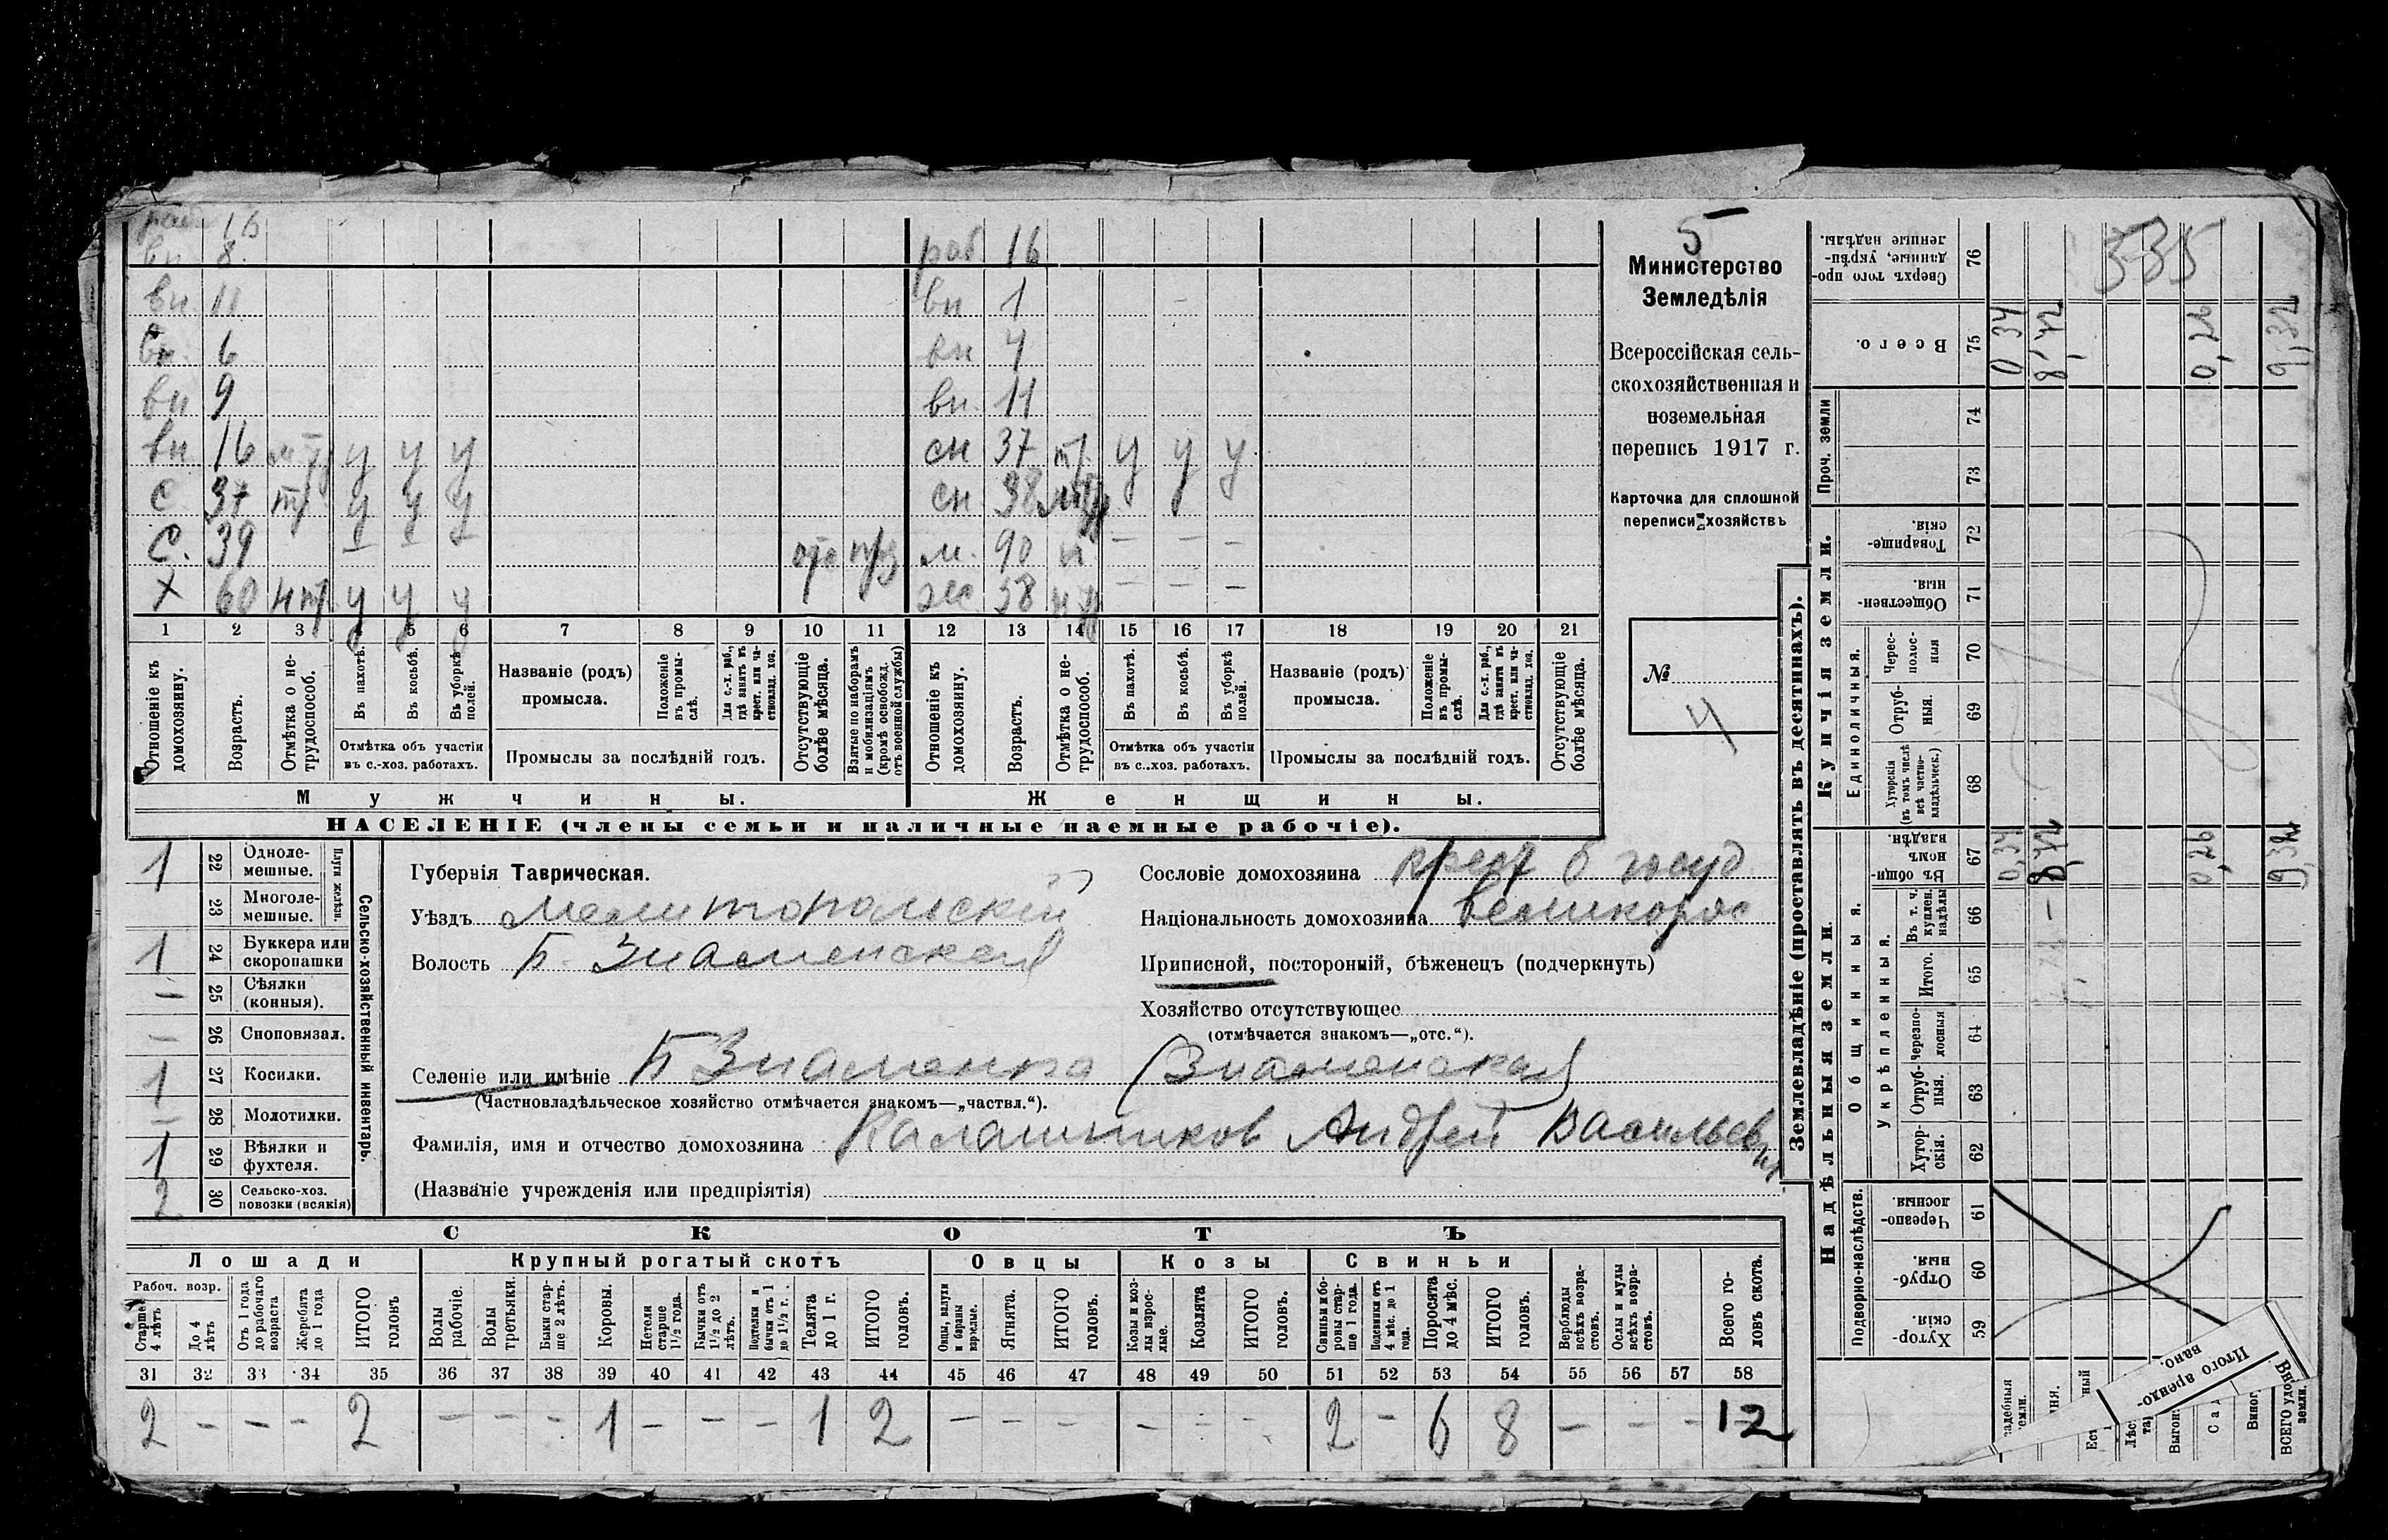 раб 16
вн 8 раб. 16
вн. 11 вн 1
вн. 6 вн 4
вн 9 вн. 11
вн 16 у у у сн 37 тр. у у у
С 37 тр у у у сн 38
С. 39 м. 90 н
Х 60 нтр. у у у ж. 58
1 2 3 4 5 6 7 8 9 10 11 12 13 14 15 16 17 18 19 20 21
Отношеніе къ домохозяину.
Возрастъ.
Отмѣтка о нетрудоспособ.
Въ пахотѣ.
Въ косьбѣ.
Въ уборкѣ полей.
Отмѣтка объ участіи
въ с.-хоз. работахъ.
Названіе (родъ)
промысла.
Положеніе въ промыслѣ.
Для с.-х. раб., гдѣ занятъ въ крест. или частновлад. хоз.
Промыслы за послѣдній годъ.
Отсутствующіе болѣе мѣсяца.
Взятые по наборамъ и мобилизаціямъ (кромѣ освобожд. отъ военной службы)
Отношеніе къ домохозяину.
Возрастъ.
Отмѣтка о нетрудоспособ.
Въ пахотѣ.
Въ косьбѣ.
Въ уборкѣ полей.
Отмѣтка объ участіи
въ с.-хоз. работахъ.
Названіе (родъ)
промысла.
Положеніе въ промыслѣ.
Для с.-х. раб., гдѣ занята въ крест. или частновлад. хоз.
Промыслы за послѣдній годъ.
Отсутствующіе болѣе мѣсяца.
Мужчины. Женщины.
НАСЕЛЕНІЕ (члены семьи и наличные наемные рабочіе).
5
Министерство
Земледѣлія
Всероссійская сель-
скохозяйственная и
поземельная
перепись 1917 г.
Карточка для сплошной
переписи хозяйствъ
№
4
Сельско-хозяйственный инвентарь.
Плуги желѣзн.
1 22 Одноле-
мешные.
23 Многоле-
мешные.
1 24 Буккера или
скоропашки
— 25 Сѣялки
(конныя).
— 26 Сноповязал.
1 27 Косилки.
— 28 Молотилки.
1 29 Вѣялки и
фухтеля.
2 30 Сельско-хоз.
повозки (всякія)
Губернія Таврическая.
Уѣздъ Мелитопольскій
Волость Б. Знаменская
Сословіе домохозяина крест б госуд.
Національность домохозяина великорос
Приписной, посторонній, бѣженецъ (подчеркнуть)
Хозяйство отсутствующее
(отмѣчается знакомъ—„отс.“).
Селеніе или имѣніе Б Знаменка (Знаменская)
(Частновладѣльческое хозяйство отмѣчается знакомъ—„частвл.“).
Фамилія, имя и отчество домохозяина Калашников Андрей Васильевич
(Названіе учрежденія или предпріятія)
СКОТЪ
Лошади Крупный рогатый скотъ Овцы Козы Свиньи
Рабоч. возр.
Старше 4 лѣтъ
До 4 лѣтъ
Отъ 1 года до рабочаго возраста
Жеребята до 1 года
ИТОГО головъ
Волы рабочіе.
Волы третьяки.
Быки старше 2 лѣтъ.
Коровы.
Нетели старше 1½ года.
Бычки отъ 1½ до 2 лѣтъ.
Подтелки и бычки отъ 1 до 1½ г.
Телята до 1 г.
ИТОГО головъ.
Овцы, валухи и бараны взрослые.
Ягнята.
ИТОГО головъ.
Козы и козлы взрослые.
Козлята
ИТОГО головъ.
Свиньи и боровы старше 1 года.
Подсвинки отъ 4 мѣс. до 1 года.
Поросята до 4 мѣс.
ИТОГО головъ.
Верблюды всѣхъ возрастовъ.
Ослы и мулы всѣхъ возрастовъ.
Всего головъ скота.
31 32 33 34 35 36 37 38 39 40 41 42 43 44 45 46 47 48 49 50 51 52 53 54 55 56 57 58
2 — — — 2 — — — 1 — — — 1 2 — — — — — — 2 — 6 8 — — — 12
Землевладѣніе (проставлять въ десятинахъ).
Надѣльныя земли.
Купчія земли.
Проч. земли
Подворно-наслѣдств.
Общинныя.
Укрѣпленныя.
Единоличныя.
Хуторскія. 59
Отрубныя 60
Черезполосныя 61
Хуторскія. 62
Отрубныя. 63
Черезполосныя 64
Итого. 65
Въ т. ч. куплен. надѣлы 66
Въ общинномъ владѣн. 67
Хуторскія (въ томъ числѣ всѣ частновладѣльческ.) 68
Отрубныя. 69
Череcполосныя 70
Общественныя 71
Товарищескія. 72
73
74
Всего. 75
Сверхъ того проданные, укрѣпленные надѣлы. 76
335
0,34 8,72 0,26 9,32
0,34 8,72 0,26 9,32
Выгон
Сад
Виног
ВСЕГО удобн. земли.
Итого арендовано.